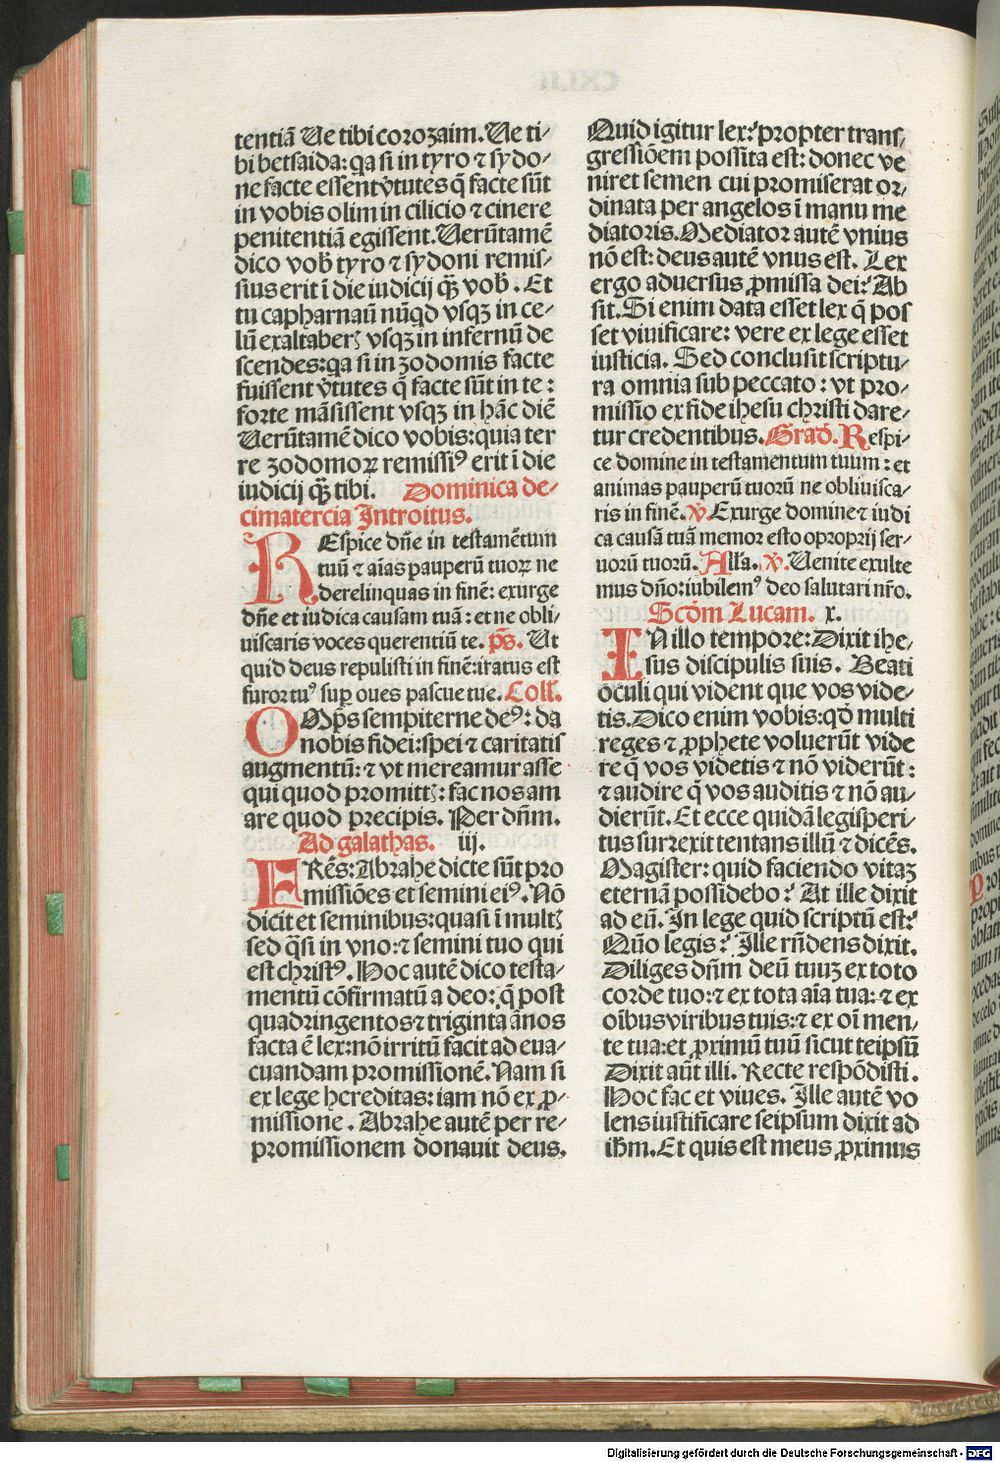 tentiã Ue tibi corozaim. Ue ti⸗
bi betsaida: qa si in tyro ⁊ sydo⸗
ne facte essent v̓tutes q̃ facte sũt
in vobis olim in cilicio ⁊ cinere
penitentiã egissent. Uerũtamẽ
dico vob̓ tyro ⁊ sydoni remis⸗
sius erit ĩ die iudicij q̃ꝫ vob̓. Et
tu capharnaũ nũqd vsqꝫ in ce⸗
lũ exaltaberꝭ vsqꝫ in infernũ de
scendes: qa si in zodomis facte
fuissent v̓tutes q̃ facte sũt in te:
forte mãsissent vsqꝫ in hãc diẽ
Uerũtamẽ dico vobis: quia ter
re zodomoꝝ remissiꝰ erit ĩ die
iudicij q̃ꝫ tibi. Dominica de⸗
cimatercia Introitus.
REspice dñe in testamẽtum
tuũ ⁊ aĩas pauperũ tuoꝝ ne
derelinquas in finẽ: exurge
dñe et iudica causam tuã: et ne obli⸗
uiscaris voces querentiũ te. p̃s. Ut
quid deus repulisti in finẽ: iratus est
furor tuꝰ suꝑ oues pascue tue. Coll̓.
OMp̃s sempiterne deꝰ: da
nobis fidei: spei ⁊ caritatis
augmentũ: ⁊ vt mereamur asse
qui quod promittꝭ: fac nos am
are quod precipis. Per dñm.
Ad galathas. iij.
FRẽs: Abrahe dicte sũt pro
missiões et semini eiꝰ. Nõ
dicit et seminibus: quasi ĩ multꝭ
sed q̃si in vno: ⁊ semini tuo qui
est christꝰ. Hoc autẽ dico testa⸗
mentũ cõfirmatũ a deo: q̃ post
quadringentos ⁊ triginta ãnos
facta ẽ lex: nõ irritũ facit ad eua⸗
cuandam promissionẽ. Nam si
ex lege hereditas: iam nõ ex ꝓ⸗
missione. Abrahe autẽ per re⸗
promissionem donauit deus.
Quid igitur lex? propter trans⸗
gressiõem possita est: donec ve
niret semen cui promiserat or⸗
dinata per angelos ĩ manu me
diatoris. Mediator autẽ vnius
nõ est: deus autẽ vnus est. Lex
ergo aduersus ꝓmissa dei? Ab
sit. Si enim data esset lex q̃ pos
set viuificare: vere ex lege esset
iusticia. Sed conclusit scriptu⸗
ra omnia sub peccato: vt pro⸗
missio ex fide ihesu christi dare⸗
tur credentibus. Grad̓. Respi⸗
ce domine in testamentum tuum: et
animas pauperũ tuorũ ne obliuisca⸗
ris in finẽ. ℣. Exurge domine ⁊ iudi
ca causã tuã memor esto oproprij ser⸗
uorũ tuorũ. All̓a. ℣. Uenite exulte
mus dño: iubilemꝰ deo salutari nr̃o.
Scd̓m Lucam. x.
IN illo tempore: Dixit ihe⸗
sus discipulis suis. Beati
oculi qui vident que vos vide⸗
tis. Dico enim vobis: qd̓ multi
reges ⁊ ꝓphete voluerũt vide
re q̃ vos videtis ⁊ nõ viderũt:
⁊ audire q̃ vos auditis ⁊ nõ au⸗
dierũt. Et ecce quidã legisperi⸗
tus surrexit tentans illũ ⁊ dicẽs.
Magister: quid faciendo vitaꝫ
eternã possidebo? At ille dixit
ad eũ. In lege quid scriptũ est?
Quõ legis? Ille rñdens dixit.
Diliges dñm deũ tuuꝫ ex toto
corde tuo: ⁊ ex tota aĩa tua: ⁊ ex
oĩbus viribus tuis: ⁊ ex oĩ men⸗
te tua: et ꝓximũ tuũ sicut teipsũ
Dixit aũt illi. Recte respõdisti.
Hoc fac et viues. Ille autẽ vo
lens iustificare seipsum dixit ad
ihm̃. Et quis est meus ꝓximus
Digitalisierung gefördert durch die Deutsche Forschungsgemeinschaft - DFG